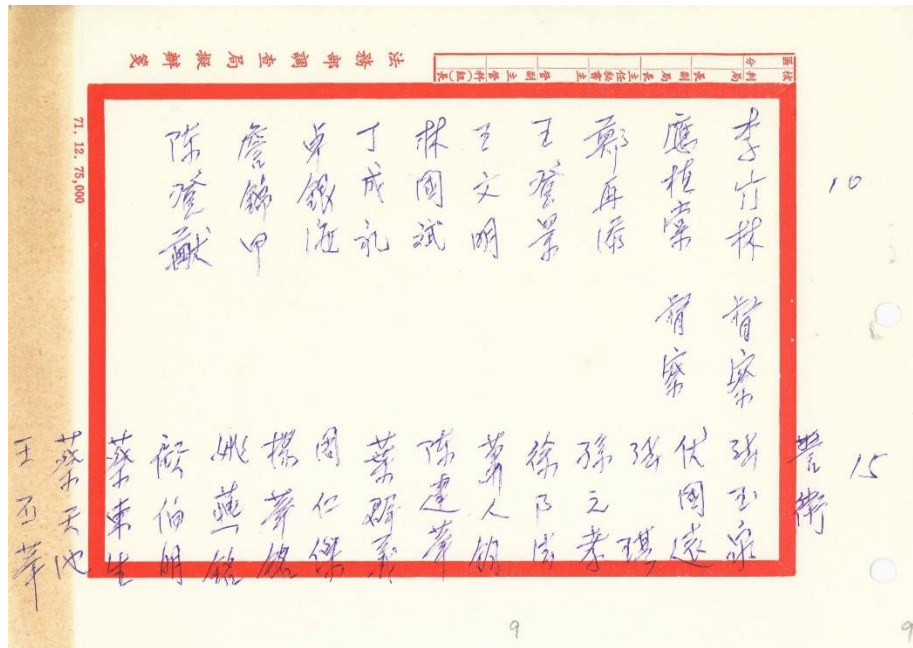 法務部調查局擬辦箋
71. 12. 75,000
10
李竹林 督察
應植棠 督察
鄭再添
王登景
王文明
林國斌
丁成礼
卓銀遊
詹錦甲
陈登猷
15
警衛
張玉泉
伏國遠
張琪
孫元孝
徐乃洪
萧人鈞
陈建華
葉群義
周仁傑
楊华銘
姚燕銘
顧伯明
蔡東生
葉天池
王丕華
9
9